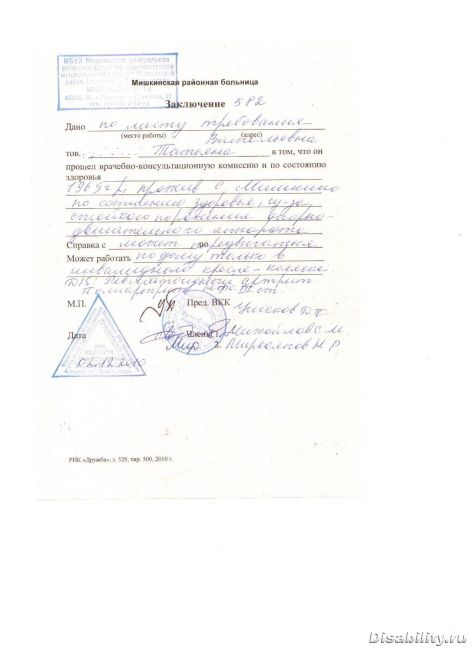 МБУЗ Мишкинская центральная
районная больница
Мишкинская районная больница
Заключение 582
Дано по листу требования
(место работы) (адрес)
тов. Татьяна в том, что он
прошел врачебно-консультационную комиссию и по состоянию
здоровья
1969 г.р., прожив. с. Мишкино
по состоянию здоровья, из-за
стойкого поражения опорно-
двигательного аппарата
Справка с может передвигаться по
Может работать по дому только в
инвалидном кресле-коляске.
DIS: Ревматоидный артрит
Полиартрит
ст.
М.П. Пред. ВКК Ушаков Д.П.
Дата Члены 1. Михайлов С.М.
2.
02.12.2010
РИК «Дружба», з. 529, тир. 500, 2010 г.
Disability.ru